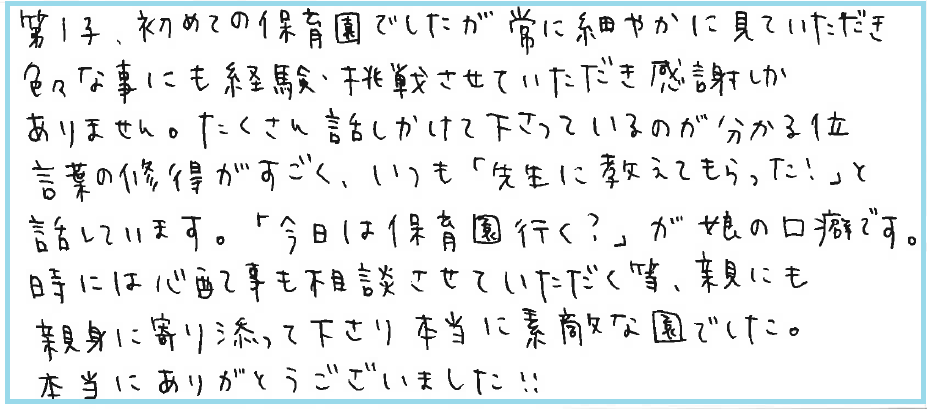 第1子、初めての保育園でしたが常に細やかに見ていただき
色々な事にも経験・挑戦させていただき感謝しか
ありません。たくさん話しかけて下さっているのが分かる位
言葉の修得がすごく、いつも「先生に教えてもらった！」と
話しています。「今日は保育園行く？」が娘の口癖です。
時には心配て事も相談させていただく等、親にも
親身に寄り添って下さり本当に素敵な園でした。
本当にありがとうございました!!